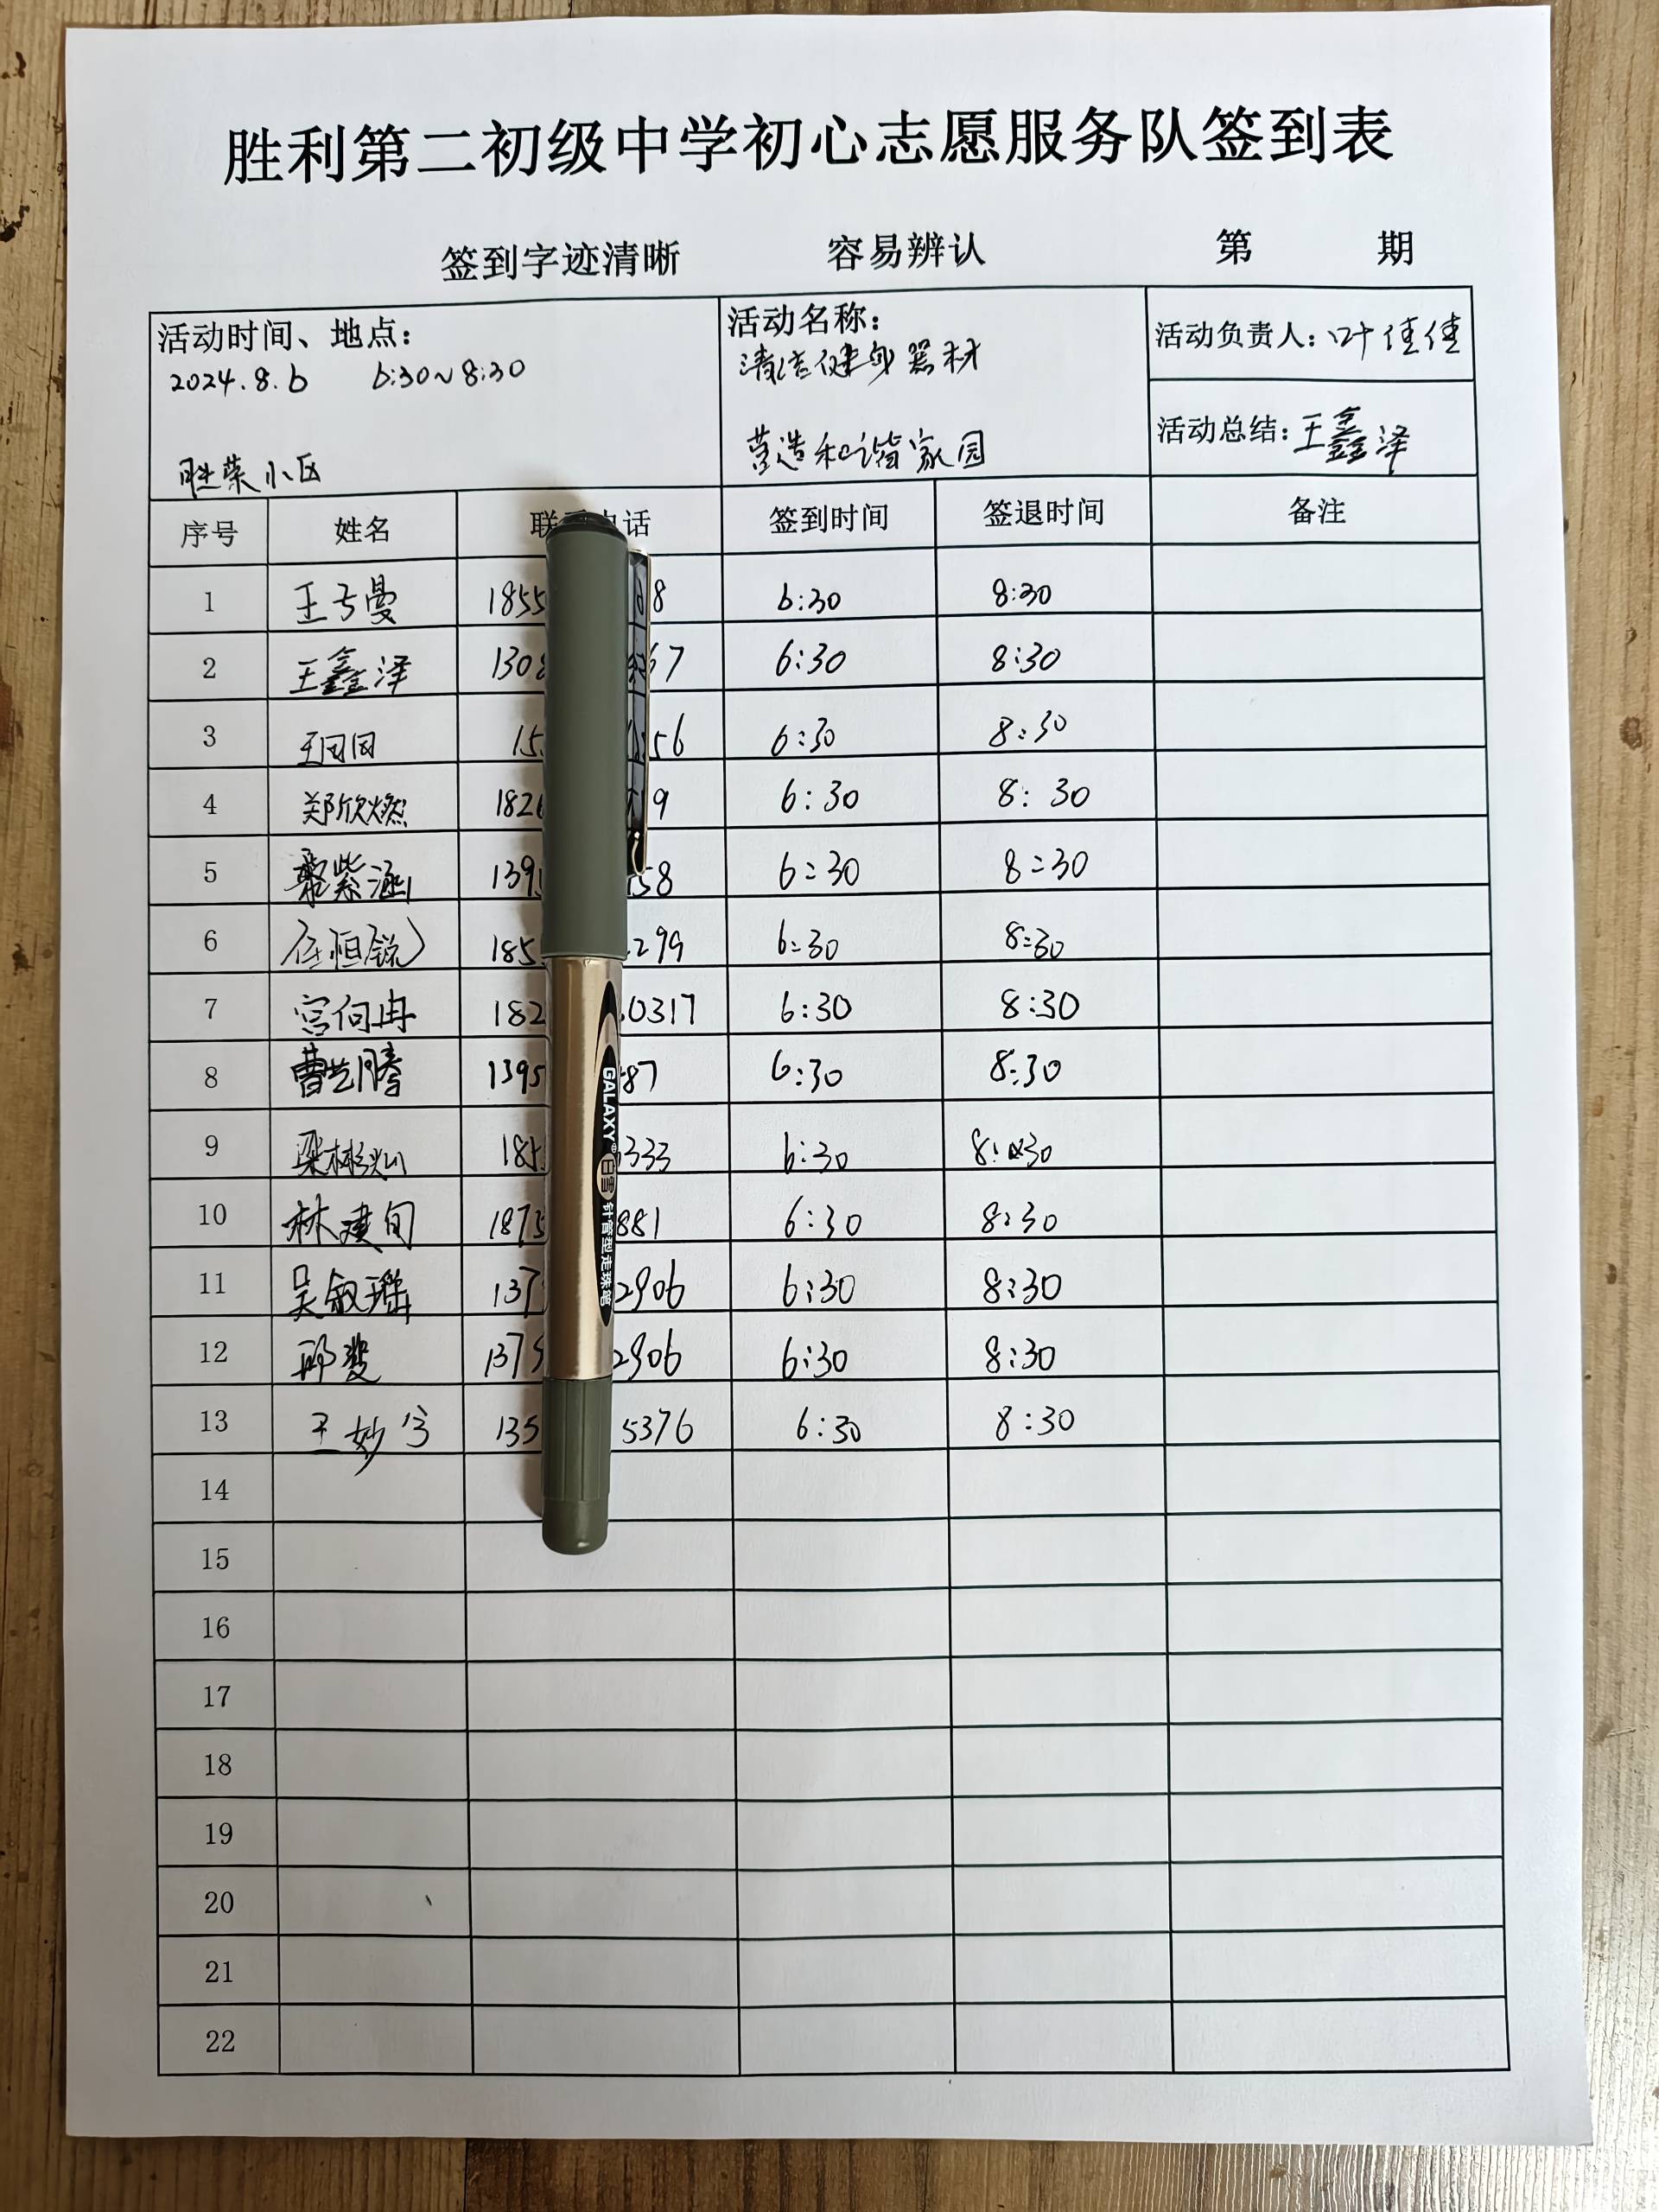 胜利第二初级中学初心志愿服务队签到表
签到字迹清晰 容易辨认 第 期
活动时间、地点: 2024.8.6 6:30~8:30
胜荣小区
活动名称: 清洁健身器材
营造和谐家园
活动负责人: 叶佳佳
活动总结: 王鑫泽
序号 姓名 联 电话 签到时间 签退时间 备注
1 1855 68 6:30 8:30
2 王鑫泽 1308 67 6:30 8:30
3 15 56 6:30 8:30
4 郑欣燃 1826 9 6:30 8:30
5 紫涵 139 58 6:30 8:30
6 任恒锐 185 299 6:30 8:30
7 宫向冉 182 0317 6:30 8:30
8 曹艺腾 1395 87 6:30 8:30
9 梁彬灿 185 333 6:30 8:30
10 林建旬 1875 881 6:30 8:30
11 吴叙瑶 137 2906 6:30 8:30
12 邱斐 1375 2906 6:30 8:30
13 王妙兮 135 5376 6:30 8:30
14
15
16
17
18
19
20
21
22
GALAXY 白雪 针管型走珠笔